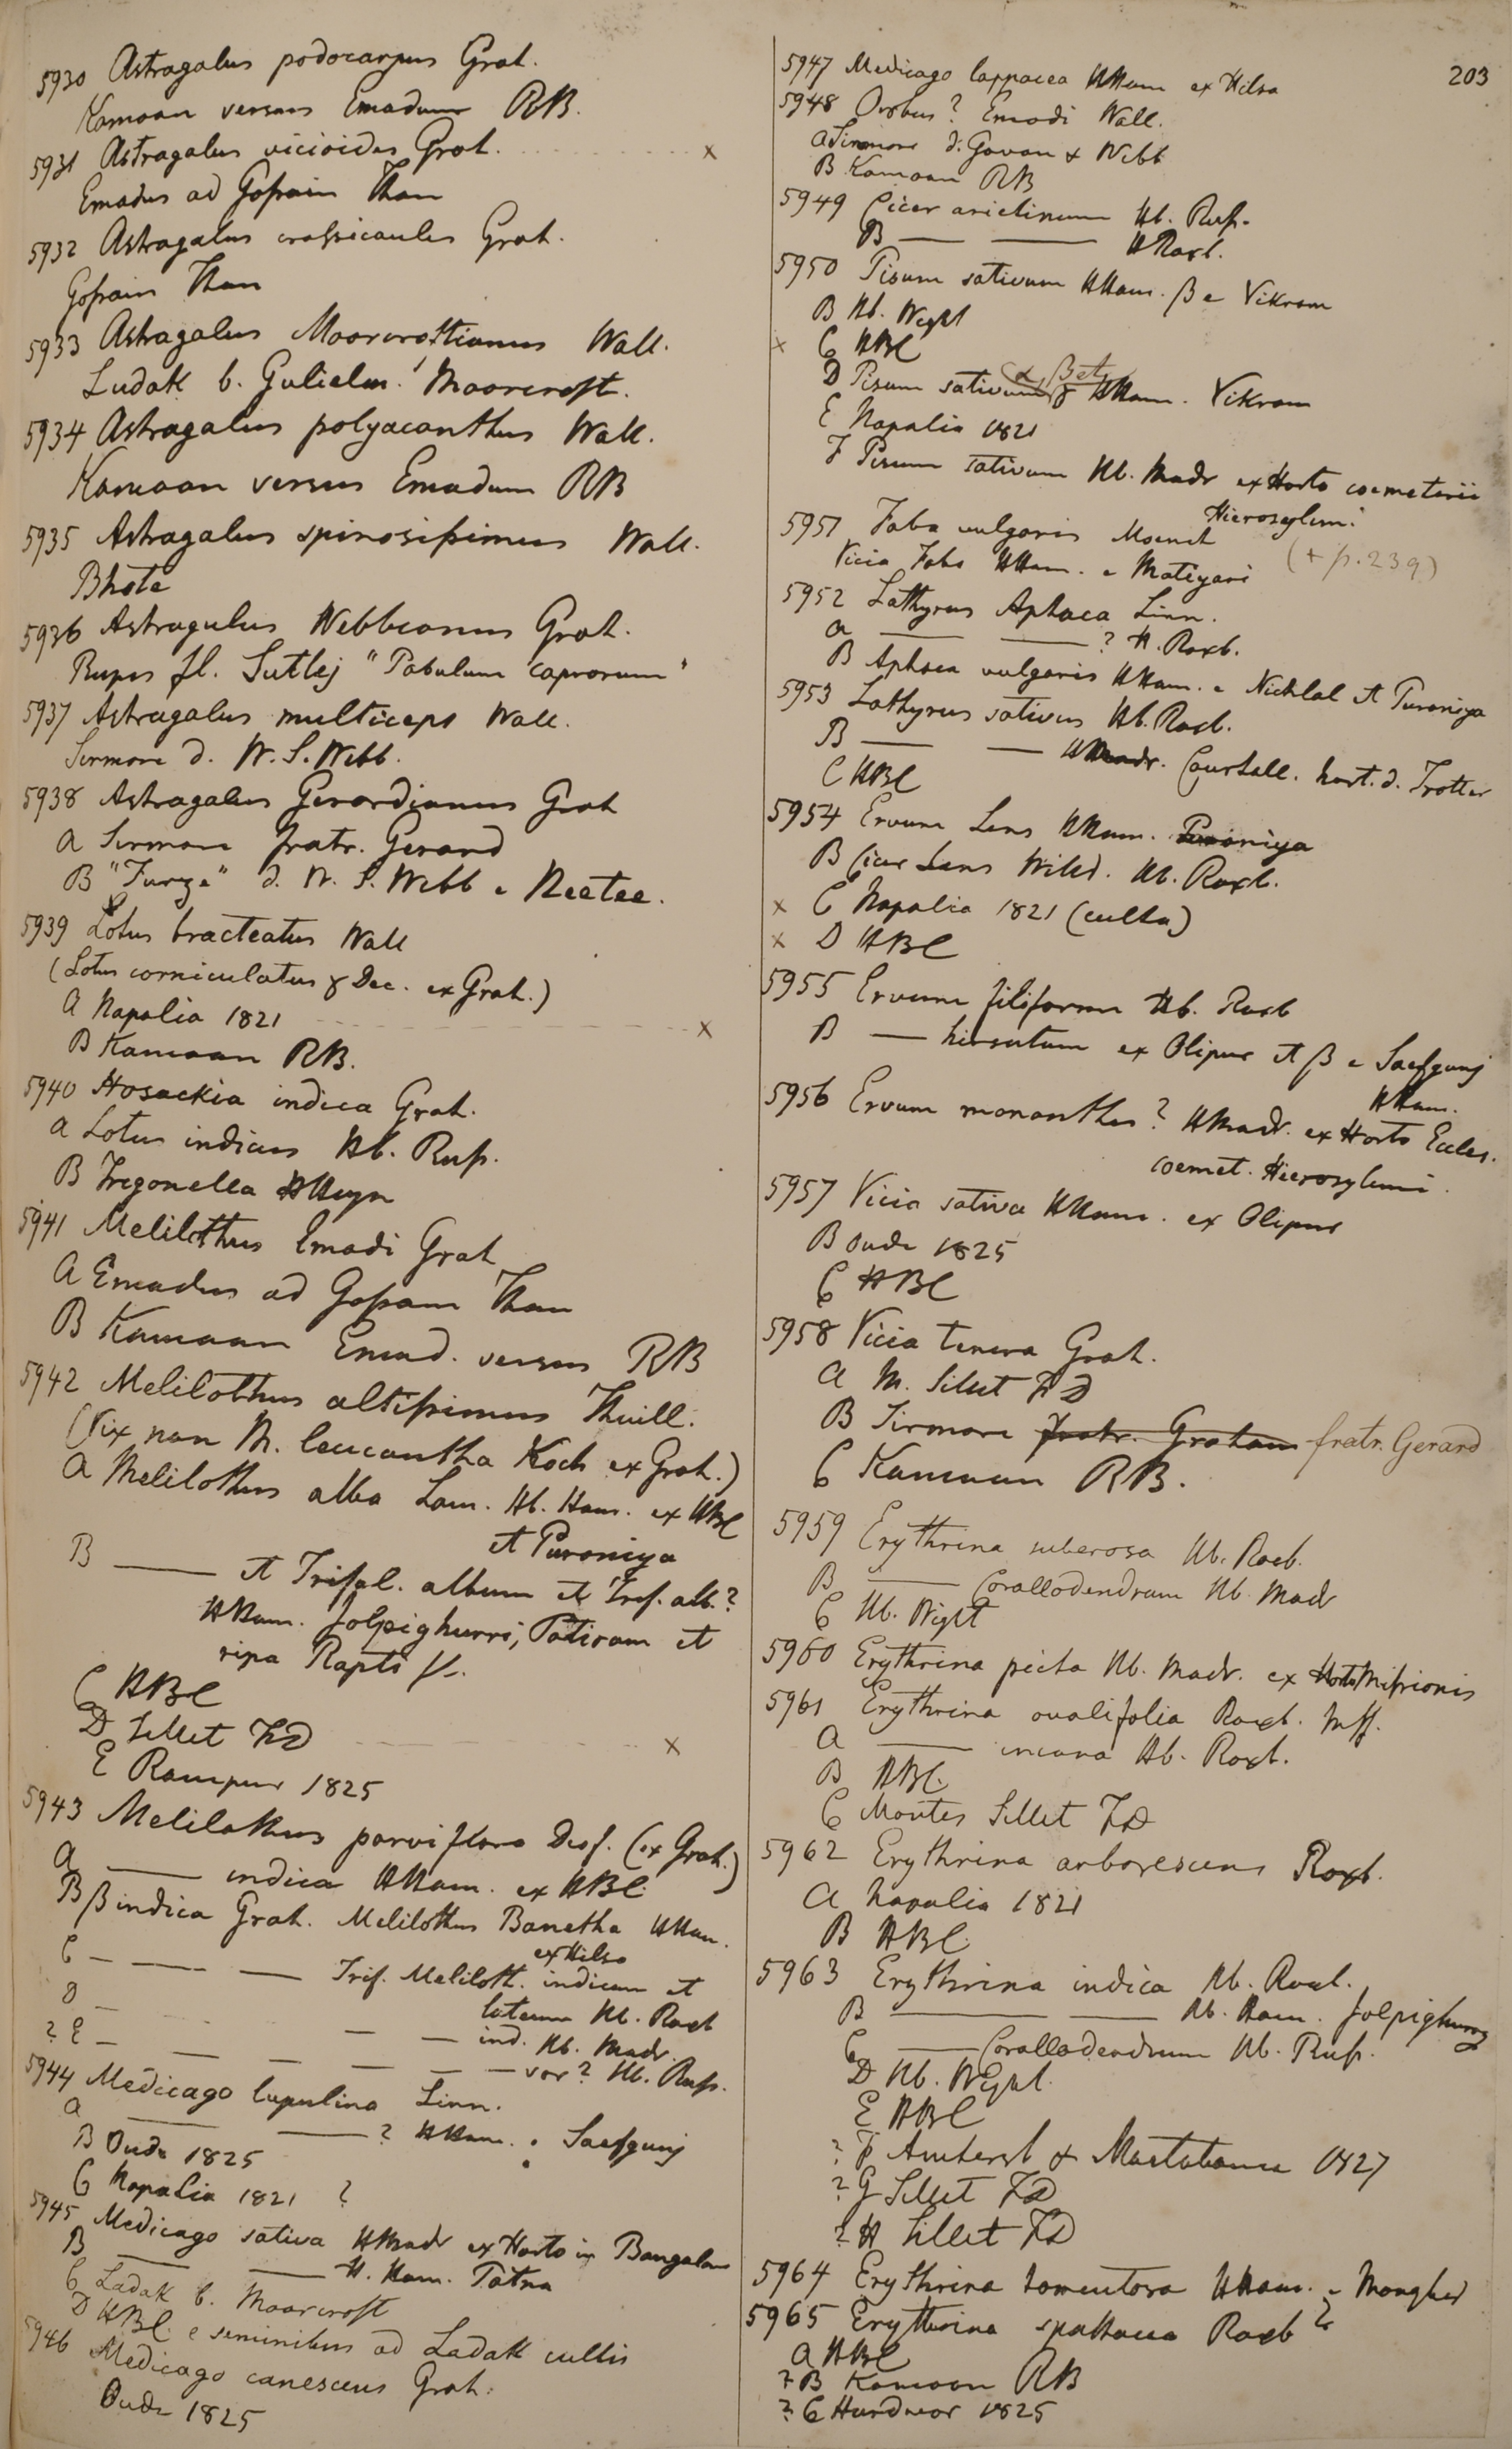 5930 Astragalus podocarpus Grah.
Kamoan versus Emadum RB.
5931 Astragalus vicioides Grah. x
Emadus ad Gossain Than
5932 Astragalus crassicaulis Grah.
Gossain Than
5933 Astragalus Moorcroftianus Wall.
Ludak b. Gulielm. Moorcroft.
5934 Astragalus polyacanthus Wall.
Kamoan versus Emadum RB
5935 Astragalus spinosissimus Wall.
Bhote
5936 Astragulus Webbianus Grah.
Rupes fl. Sutlej "Pabulum caprorum"
5937 Astragalus multiceps Wall.
Sirmore d. W. S. Webb.
5938 Astragalus Gerardianus Grah
a Sirmore fratr. Gerard
B "Furze" d. W. S. Webb e Neetee.
5939 Lotus bracteatus Wall
(Lotus corniculatus γ Dec. ex Grah.)
a Napalia 1821 x
B Kamoan RB.
5940 Hosackia indica Grah.
a Lotus indicus Hb. Russ.
B Tregonella HHeyn
5941 Melilothus Emodi Grah
a Emadus ad Gossain Than
B Kamoan Emod. versus RB
5942 Melilothus altissimus Thuill.
(Vix non M. leucantha Koch ex Grah.)
a Melilothus alba Lam. Hb. Ham. ex HBC
et Puroniya
B —— et Trifol. album et Trif. alb.?
HHam. Jolpighurri, Patiram et
ripa Rapti fl.
C HBC
D Sillet FD x
E Rampur 1825
5943 Melilothus parviflora Desf. (ex Grah.)
a —— indica HHam. ex HBC
B β indica Grah. Melilothus Banetha HHam.
ex Hilsa
C — — — Trif. Meliloth. indicum et
luteum Hb. Roxb
D — — — ind. Hb. Madr.
? E — — — — — var? Hb. Russ.
5944 Medicago lupulina Linn.
a —— —— ? HHam. e Saefgunj
B Oude 1825
C Napalia 1821 ?
5945 Medicago sativa HMadr ex Horto in Bangalore
B —— —— H. Ham. Patna
C Ladak b. Moorcroft
D HBC e seminibus ad Ladak cultis
5946 Medicago canescens Grah.
Oude 1825
203
5947 Medicago lappacea HHam ex Hilsa
5948 Orobus? Emodi Wall.
a Sirmore d. Govan & Webb
B Kamoan RB
5949 Cicer arietinum Hb. Russ.
B —— —— HRoxb.
5950 Pisum sativum HHam. β e Vikram
B Hb. Wight
x C HBC
D Pisum sativum α, β et γ HHam. Vikram
E Napalia 1821
F Pisum sativum Hb. Madr ex Horto coemeterii
Hierosylim.
5951 Faba vulgaris Moench
(+ p. 239)
Vicia Faba HHam. e Matiyari
5952 Lathyrus Aphaca Linn.
a —— —— ? H. Roxb.
B Aphaca vulgaris HHam. e Nichlal et Puroniya
5953 Lathyrus sativus Hb. Roxb.
B —— — HMadr. Courtall. hort. d. Trotter
C HBC
5954 Ervum Lens HHam. Puroniya
B Cicer Lens Willd. Hb. Roxb.
x C Napalia 1821 (culta)
x D HBC
5955 Ervum filiforme Hb. Roxb
B —— hirsutum ex Olipur et β e Saefgunj
HHam.
5956 Ervum monanthos? HMadr. ex Horto Eccles.
coemet. Hierosylimi.
5957 Vicia sativa HHam. ex Olipur
B Oude 1825
C HBC
5958 Vicia tenera Grah.
a M. Sillet FD
B Sirmore fratr. Graham fratr. Gerard
C Kamoan RB.
5959 Erythrina suberosa Hb. Roxb.
B —— Corallodendrum Hb. Madr
C Hb. Wight
5960 Erythrina picta Hb. Madr. ex Horto Missionis
5961 Erythrina ovalifolia Roxb. Mss.
a —— incana Hb. Roxb.
B HBC.
C Montes Sillet FD
5962 Erythrina arborescens Roxb.
a Napalia 1821
B HBC
5963 Erythrina indica Hb. Roxb.
B —— —— Hb. Ham. Jolpighurry
C —— Corallodendrum Hb. Russ.
D Hb. Wight.
E HBC
? F Amherst & Martabania 1827
? G Sillet FD
? H Sillet FD
5964 Erythrina tomentosa HHam. e Monghir
5965 Erythrina spathacea Roxb?
a HBC
? B Kamoon RB
? C Hurdwar 1825